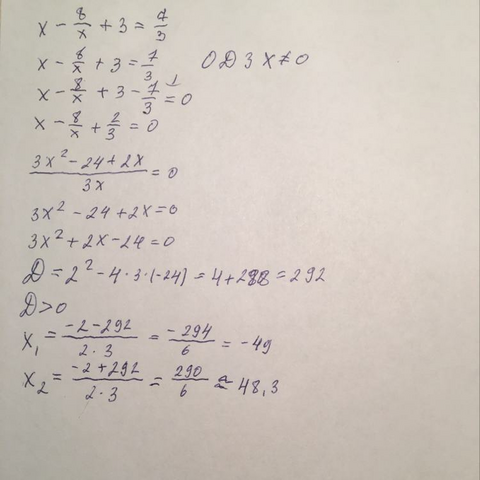 x - 8/x + 3 = 7/3
x - 8/x + 3 = 7/3 ОДЗ x ≠ 0
x - 8/x + 3 - 7/3 = 0
x - 8/x + 2/3 = 0
(3x² - 24 + 2x)/3x = 0
3x² - 24 + 2x = 0
3x² + 2x - 24 = 0
D = 2² - 4 · 3 · (-24) = 4 + 288 = 292
D > 0
x₁ = (-2 - 292)/(2 · 3) = -294/6 = -49
x₂ = (-2 + 292)/(2 · 3) = 290/6 ≈ 48,3